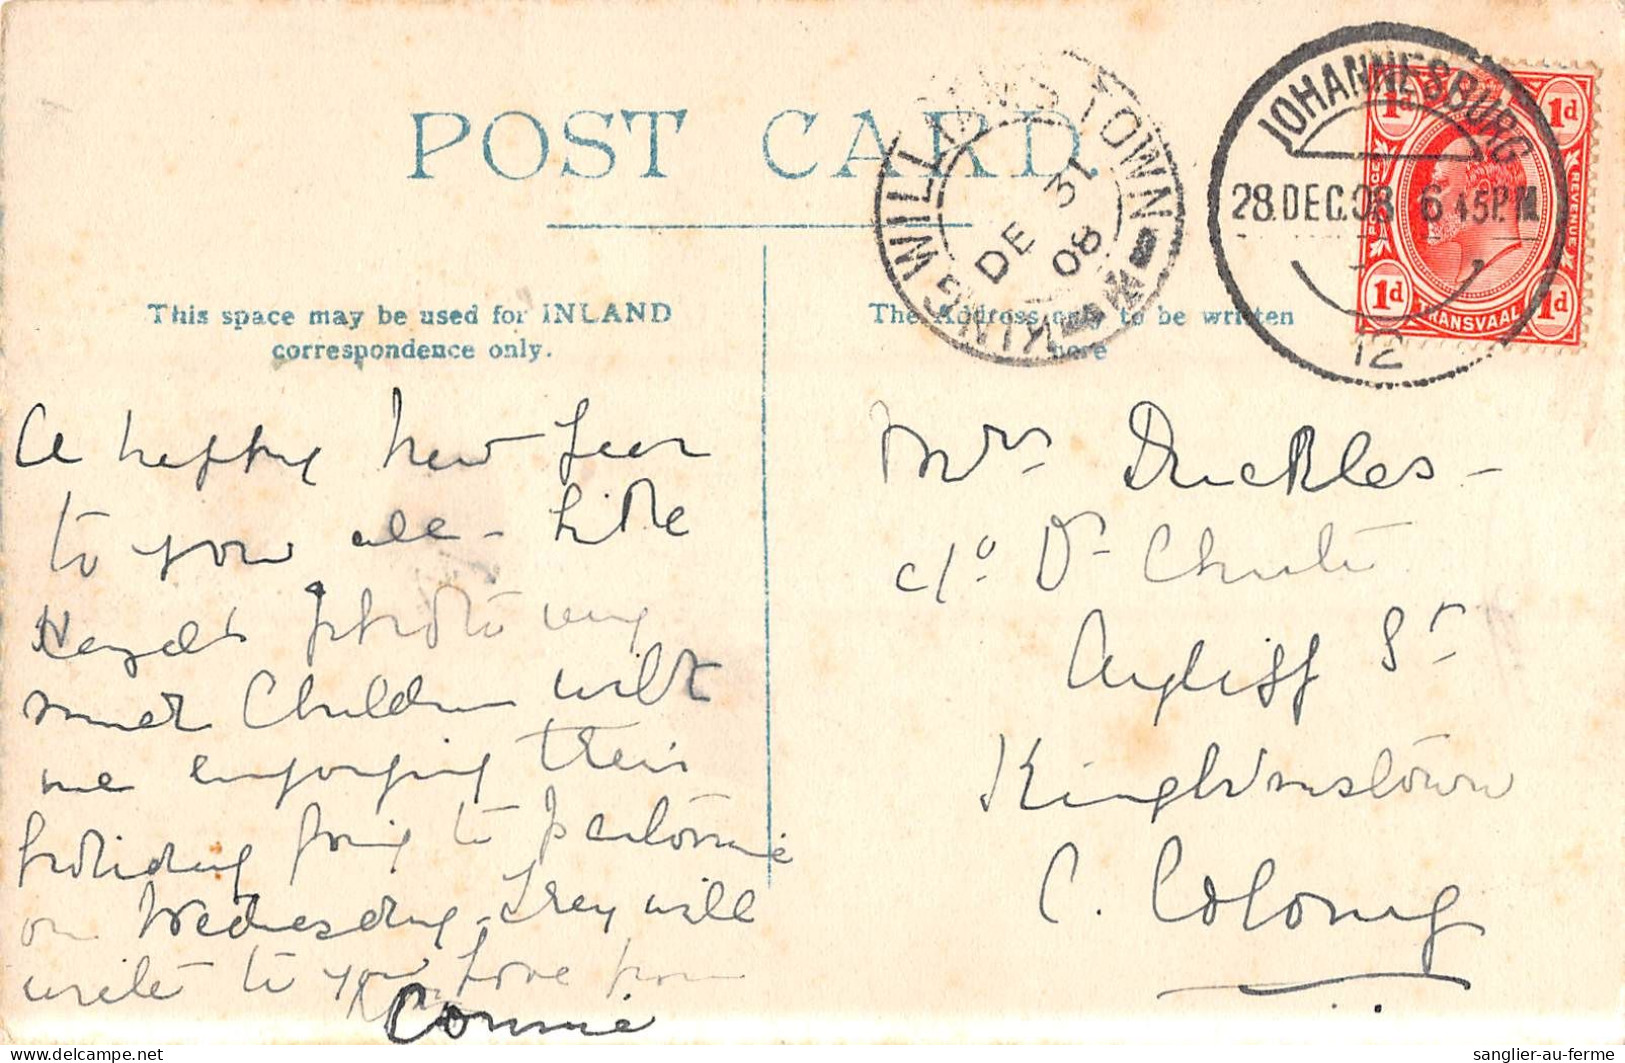 POST CARD.
KING WILLIAMS TOWN
DE 31
08
JOHANNESBURG
28.DEC.08 6 45P.M
12
1d 1d
POSTAGE REVENUE
1d 1d
TRANSVAAL
This space may be used for INLAND
correspondence only.
The Address only to be written
here
A happy New Year
to you all - like
photo very
much Children with
me enjoying their
holiday going to
on Wednesday - They will
write to you Love from
Connie
Mrs Duckles -
c/o Dr Chute
Ayliff St
KingWmstown
C. Colony
sanglier-au-ferme
delcampe.net